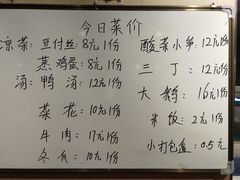 今日菜价
凉菜：豆付丝：8元1份
蒸鸡蛋：8元1份
汤：鸭汤：12元1份
菜花：10元1份
牛肉：17元1份
冬瓜：10元1份
酸菜小笋：12元1份
三丁：12元1份
大鹅：16元1份
米饭：2元1份
小打包盒：0.5元